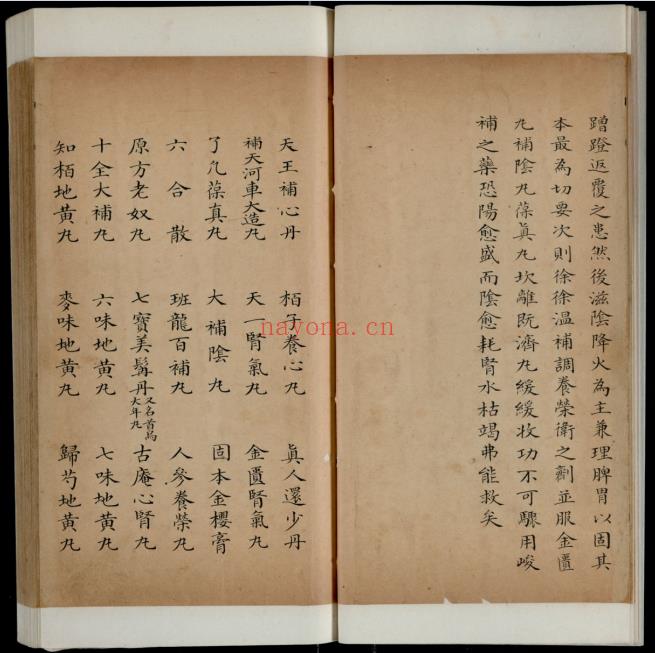 蹭蹬返覆之患然後滋陰降火為主兼理脾胃以固其
本最為切要次則徐徐溫補調養榮衛之劑並服金匱
丸補陰丸葆真丸坎離既濟丸緩緩收功不可驟用峻
補之藥恐陽愈盛而陰愈耗腎水枯竭弗能救矣
天王補心丹 栢子養心丸 真人還少丹
補天河車大造丸 天一腎氣丸 金匱腎氣丸
了凡葆真丸 大補陰丸 固本金櫻膏
六合散 班龍百補丸 人參養榮丸
原方老奴丸 七寶美髯丹又名首烏大年丸 古庵心腎丸
十全大補丸 六味地黃丸 七味地黃丸
知栢地黃丸 麥味地黃丸 歸芍地黃丸
nayona.cn